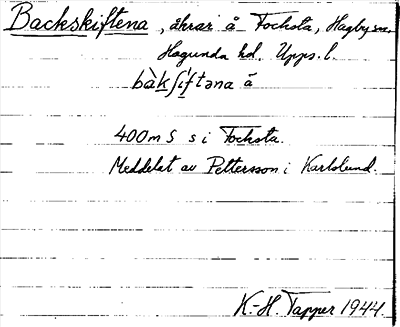 Backskiftena, åkrar å Focksta, Hagby sn,
Hagunda hd. Upps. l.
bàkʃíftəna å
400 m S s i Focksta.
Meddelat av Pettersson i Karlslund.
K.-H. Tapper 1944.